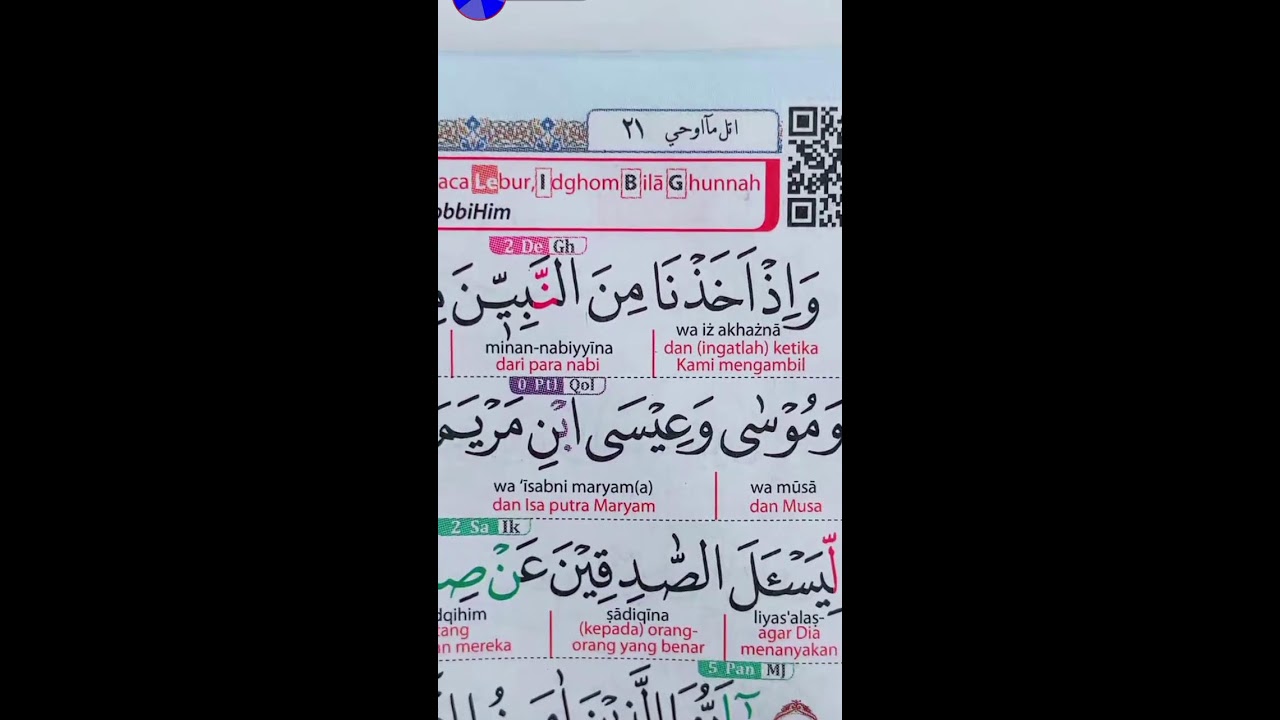 اتل مآاوحي ٢١
aca Lebur, Idghom Bilā Ghunnah
obbiHim
2 De Gh
وَاِذْ اَخَذْنَا مِنَ النَّبِيّٖنَ
wa iż akhażnā
dan (ingatlah) ketika
Kami mengambil
minan-nabiyyīna
dari para nabi
0 Ptl Qol
وَمُوْسٰى وَعِيْسَى ابْنِ مَرْيَمَ
wa mūsā
dan Musa
wa ‘īsabni maryam(a)
dan Isa putra Maryam
2 Sa Ik
لِّيَسْـَٔلَ الصّٰدِقِيْنَ عَنْ صِ
liyas'alaṣ-
agar Dia
menanyakan
ṣādiqīna
(kepada) orang-
orang yang benar
dqihim
tang
an mereka
5 Pan MJ